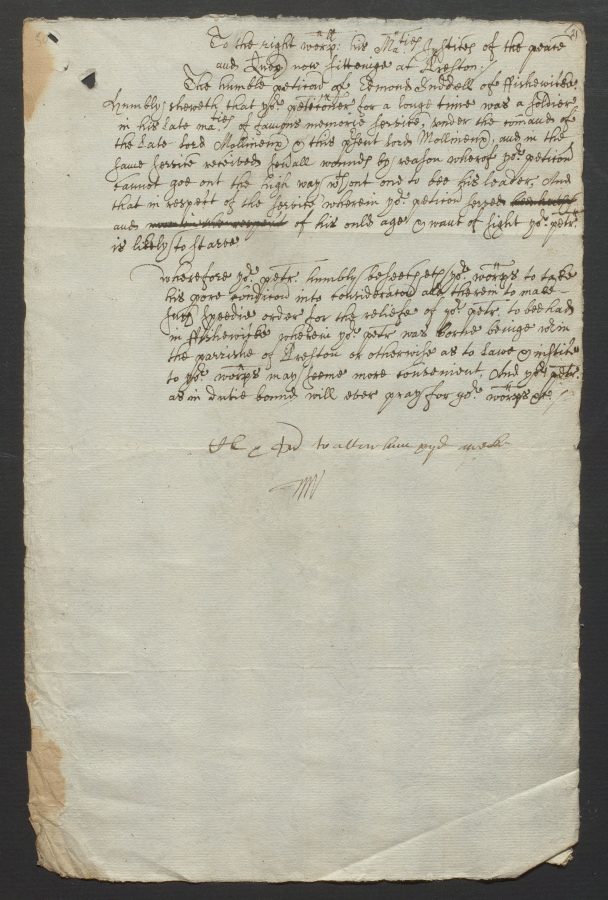 21
To the right worp:all his Maties Justices of the peace
and now sittenge at Preston.
The humble peticon of Edmond of ffishewicke
Humbly sheweth that yor peticoner for a longe time was a soldier
in his late maties of famous memorie service, under the comand of
the Late lord Mollineux & this psent lord Mollineux, and in the
same service received sevall wounds by reason wherof yor peticon
cannot goe out the high way wthout one to bee his leader, And
that in respect of the service wherein yor peticon served
and of his ould age & want of sight yor petr
is likely to starve
Wherefore yor petr humbly beseecheth yor worps to take
his pore condicon into consideracon and therein to make
such speedie order for the reliefe of yor petr to bee had
in ffishewicke wherein yor petr was borne beinge wthin
the parrishe of Preston or otherwise as to Lawe & iustice
to yor worps may seeme more convenient, And yor petr
as in dutie bound will ever pray for yor worps &c
to allow him weekly